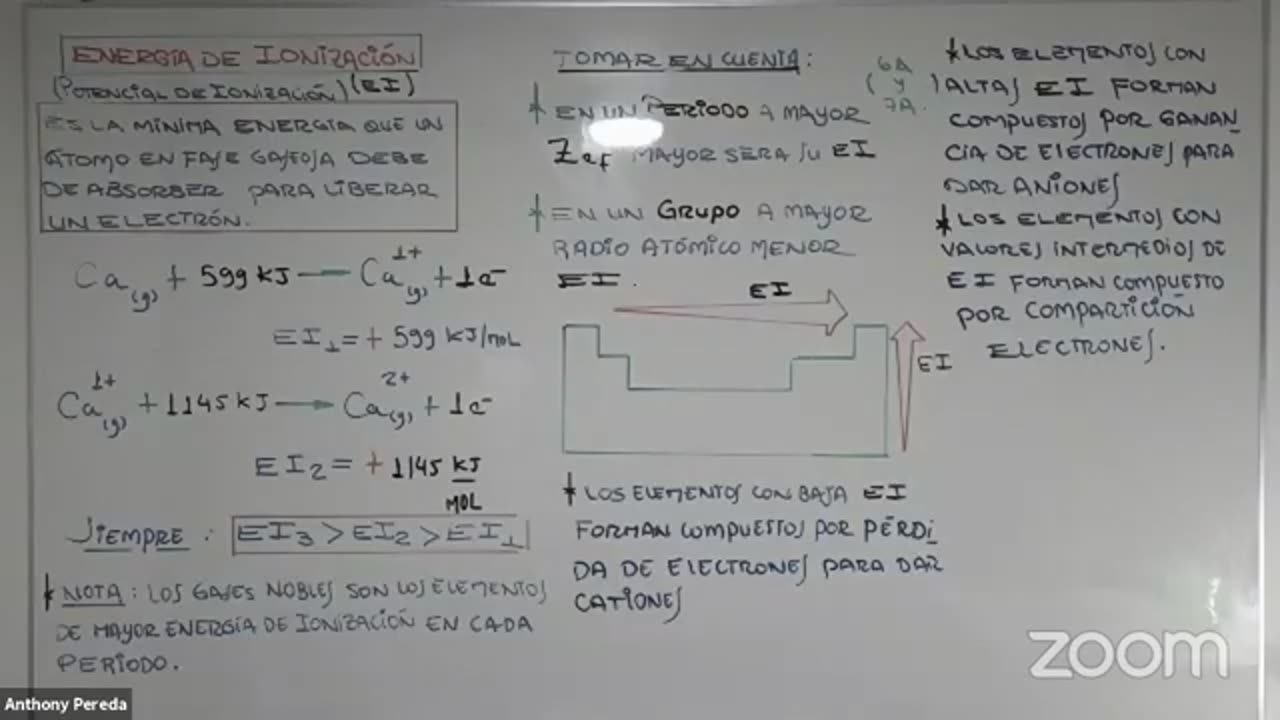 ENERGÍA DE IONIZACIÓN
(POTENCIAL DE IONIZACIÓN) (EI)
ES LA MÍNIMA ENERGÍA QUE UN
ÁTOMO EN FASE GASEOSA DEBE
DE ABSORBER PARA LIBERAR
UN ELECTRÓN.
Ca(g) + 599 KJ → Ca(g)1+ + 1e-
EI1 = + 599 KJ/MOL
Ca(g)1+ + 1145 KJ → Ca(g)2+ + 1e-
EI2 = + 1145 KJ
MOL
SIEMPRE : EI3 > EI2 > EI1
* NOTA : LOS GASES NOBLES SON LOS ELEMENTOS
DE MAYOR ENERGÍA DE IONIZACIÓN EN CADA
PERIODO.
TOMAR EN CUENTA :
* EN UN PERIODO A MAYOR
Zef MAYOR SERA SU EI
* EN UN GRUPO A MAYOR
RADIO ATÓMICO MENOR
EI.
EI
EI
* LOS ELEMENTOS CON BAJA EI
FORMAN COMPUESTOS POR PÉRDI
DA DE ELECTRONES PARA DAR
CATIONES
(6A
y
7A.)
* LOS ELEMENTOS CON
ALTAS EI FORMAN
COMPUESTOS POR GANAN
CIA DE ELECTRONES PARA
DAR ANIONES
* LOS ELEMENTOS CON
VALORES INTERMEDIOS DE
EI FORMAN COMPUESTO
POR COMPARTICIÓN
ELECTRONES.
zoom
Anthony Pereda